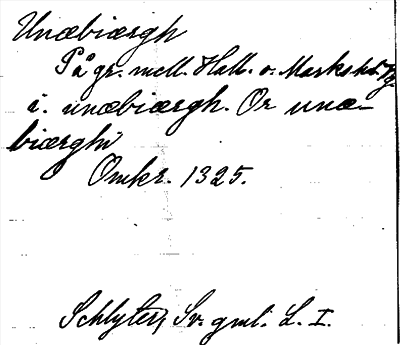 Unæbiærgh
På gr. mell. Hall. o. Marks hd. Vg.
i. unæbiærgh. Or unæ-
biærghi
Omkr. 1325.
Schlyter, Sv. gml. L. I.